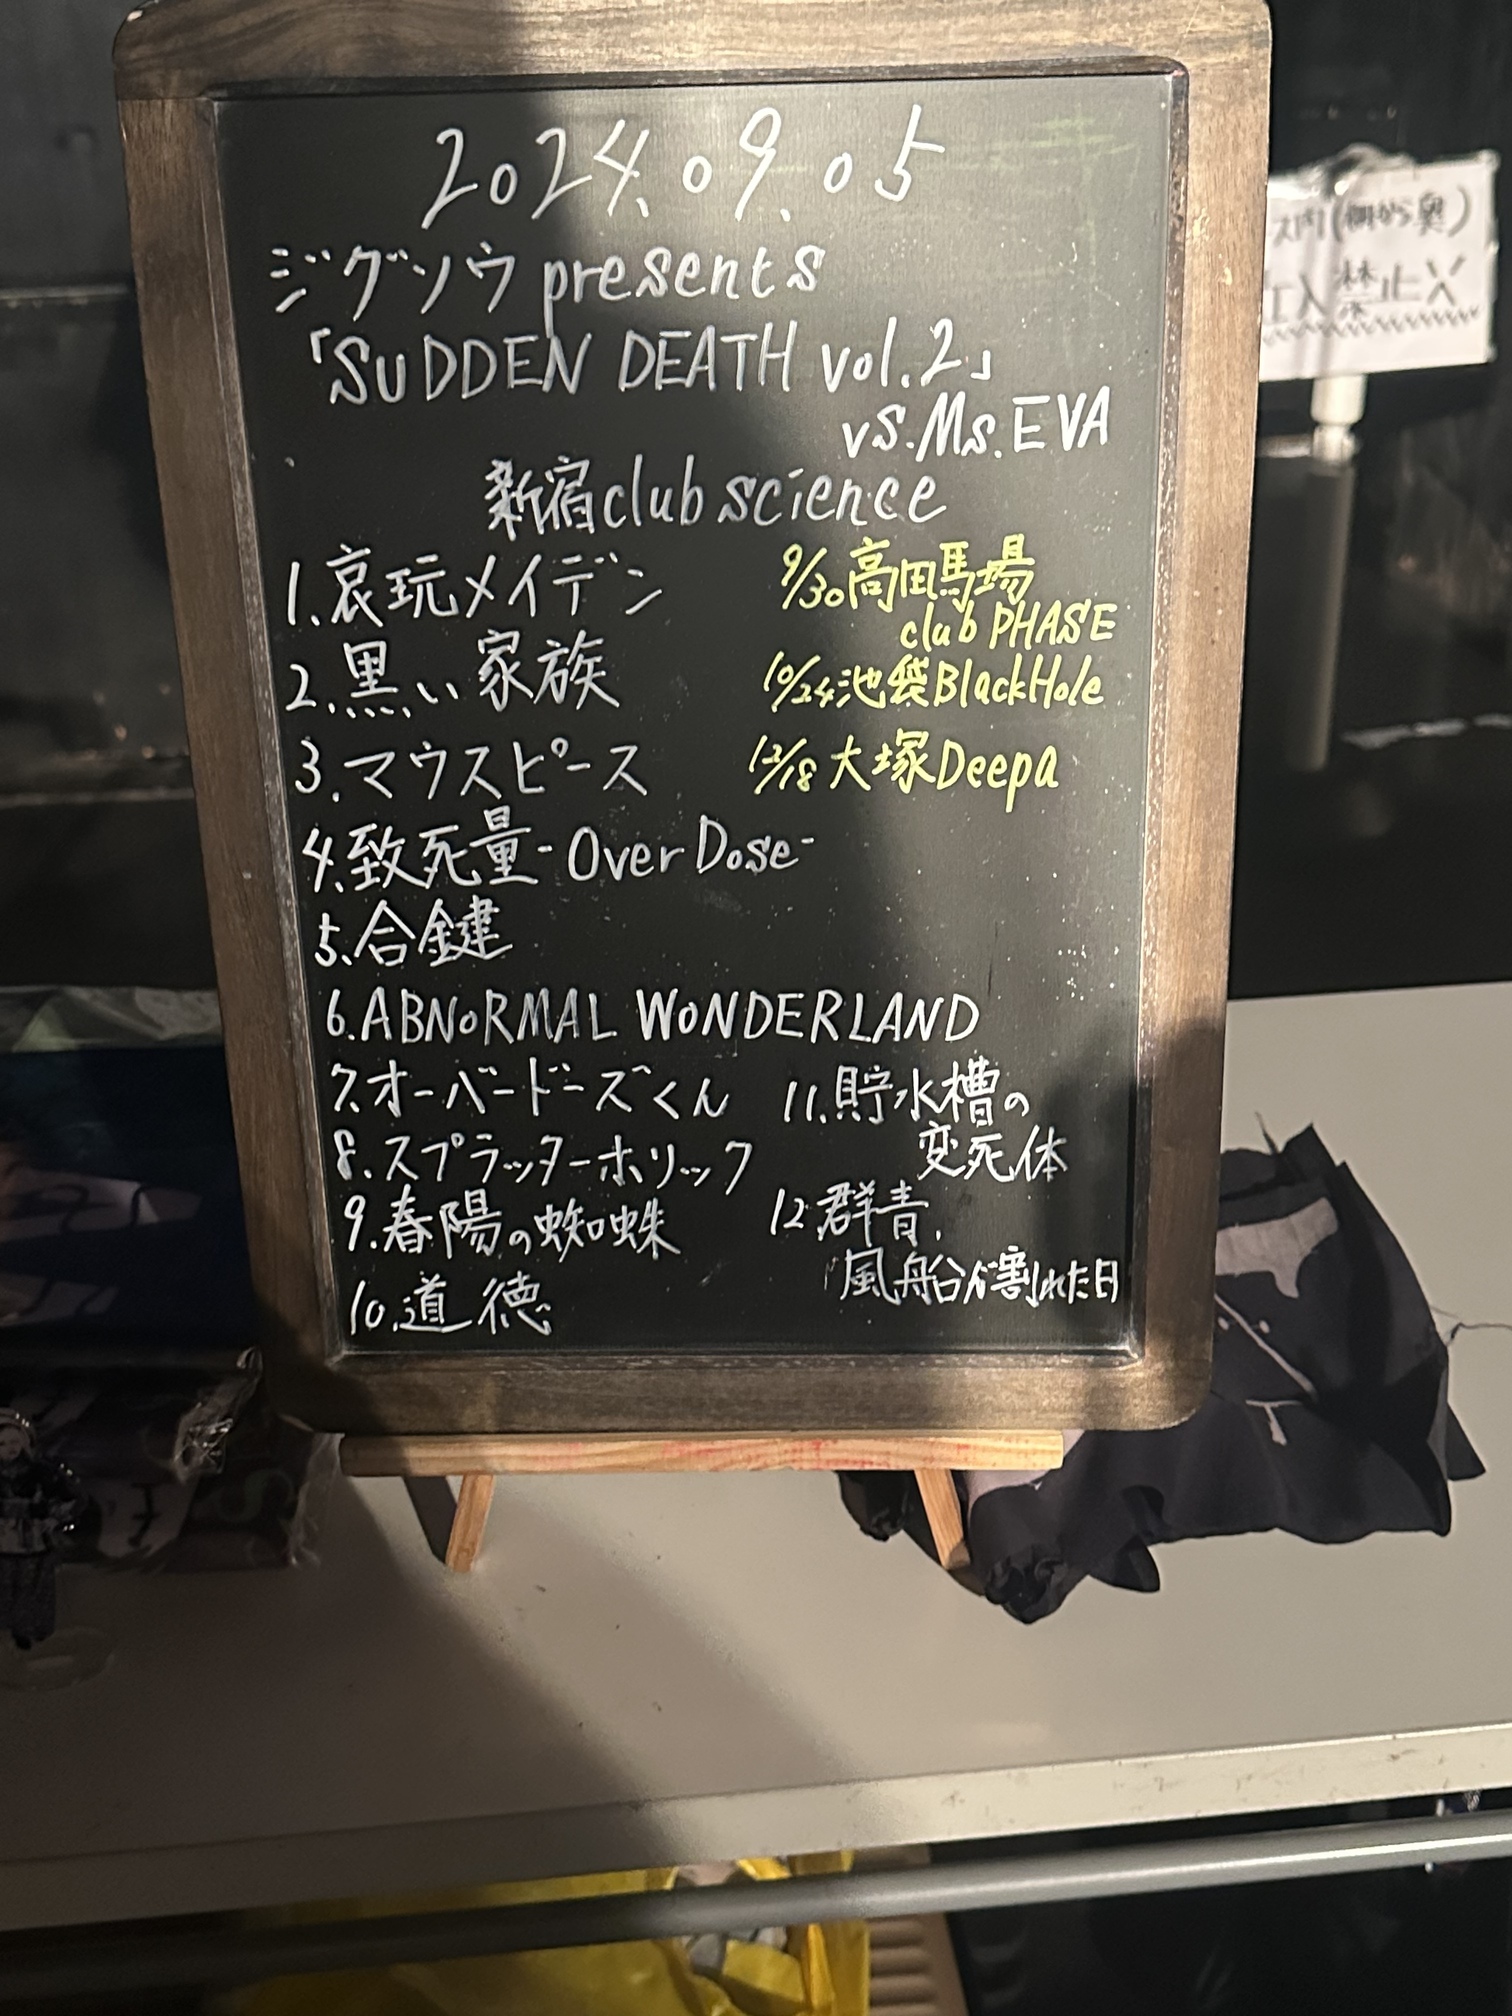 2024.09.05
ジグソウ presents
「SUDDEN DEATH vol.2」
vs.Ms.EVA
新宿club science
1.哀玩メイデン
2.黒い家族
3.マウスピース
4.致死量-Over Dose-
5.合鍵
6.ABNORMAL WONDERLAND
7.オーバードーズくん
8.スプラッターホリック
9.春陽の蜘蛛
10.道徳
9/30高田馬場
club PHASE
10/24池袋BlackHole
12/18大塚Deepa
11.貯水槽の
変死体
12.群青、
風船が割れた日
(側から奥)
禁止X